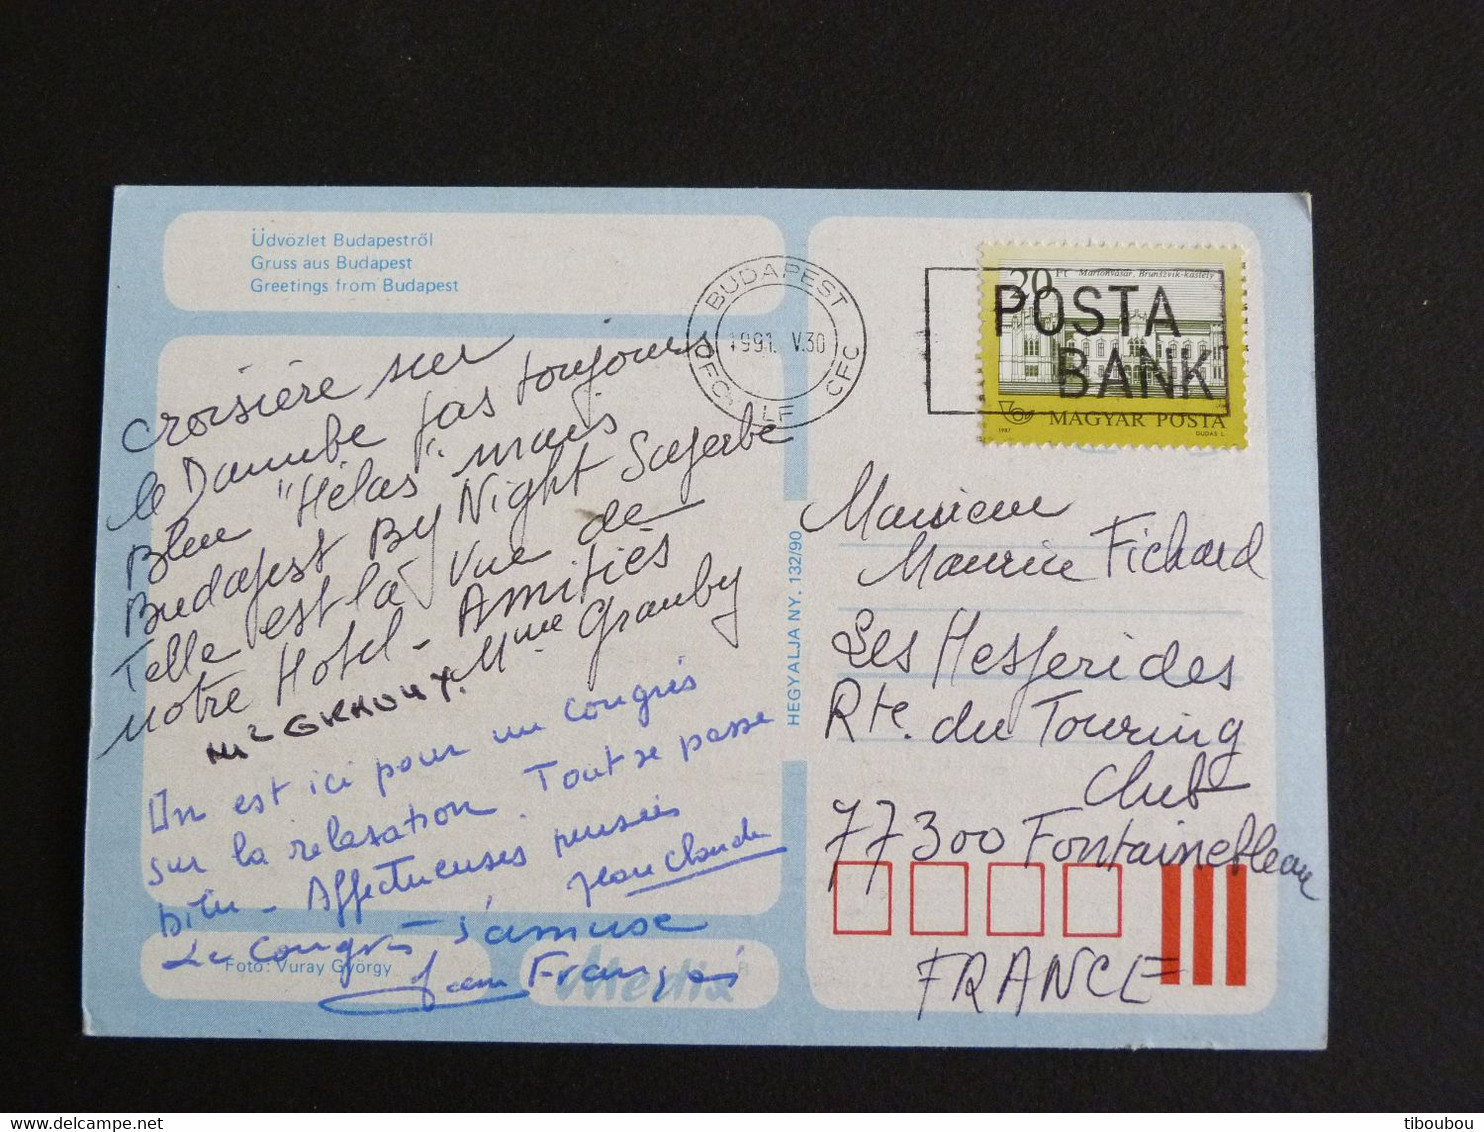 Üdvözlet Budapestről
Gruss aus Budapest
Greetings from Budapest
Croisière sur
le Danube pas toujours
Bleu "Hélas" mais
Budapest By Night Superbe
Telle est la vue de
notre Hotel - Amitiés
Mme Grauby
On est ici pour un congrès
sur la relaxation. Tout se passe
bien - Affectueuses pensées
Jean Claude
Le Congrès s'amuse
Jean François
Foto: Vuray György
Media
HEGYALJA NY. 132/90
BUDAPEST
1991. V.30
CFC CFC
POSTA
BANK
20 Ft Martonvásár, Brunszvik-kastély
MAGYAR POSTA
1987 DUDÁS L.
Monsieur
Maurice Fichard
Les Hesperides
Rte. du Touring
Club
77300 Fontainebleau
FRANCE
tiboubou